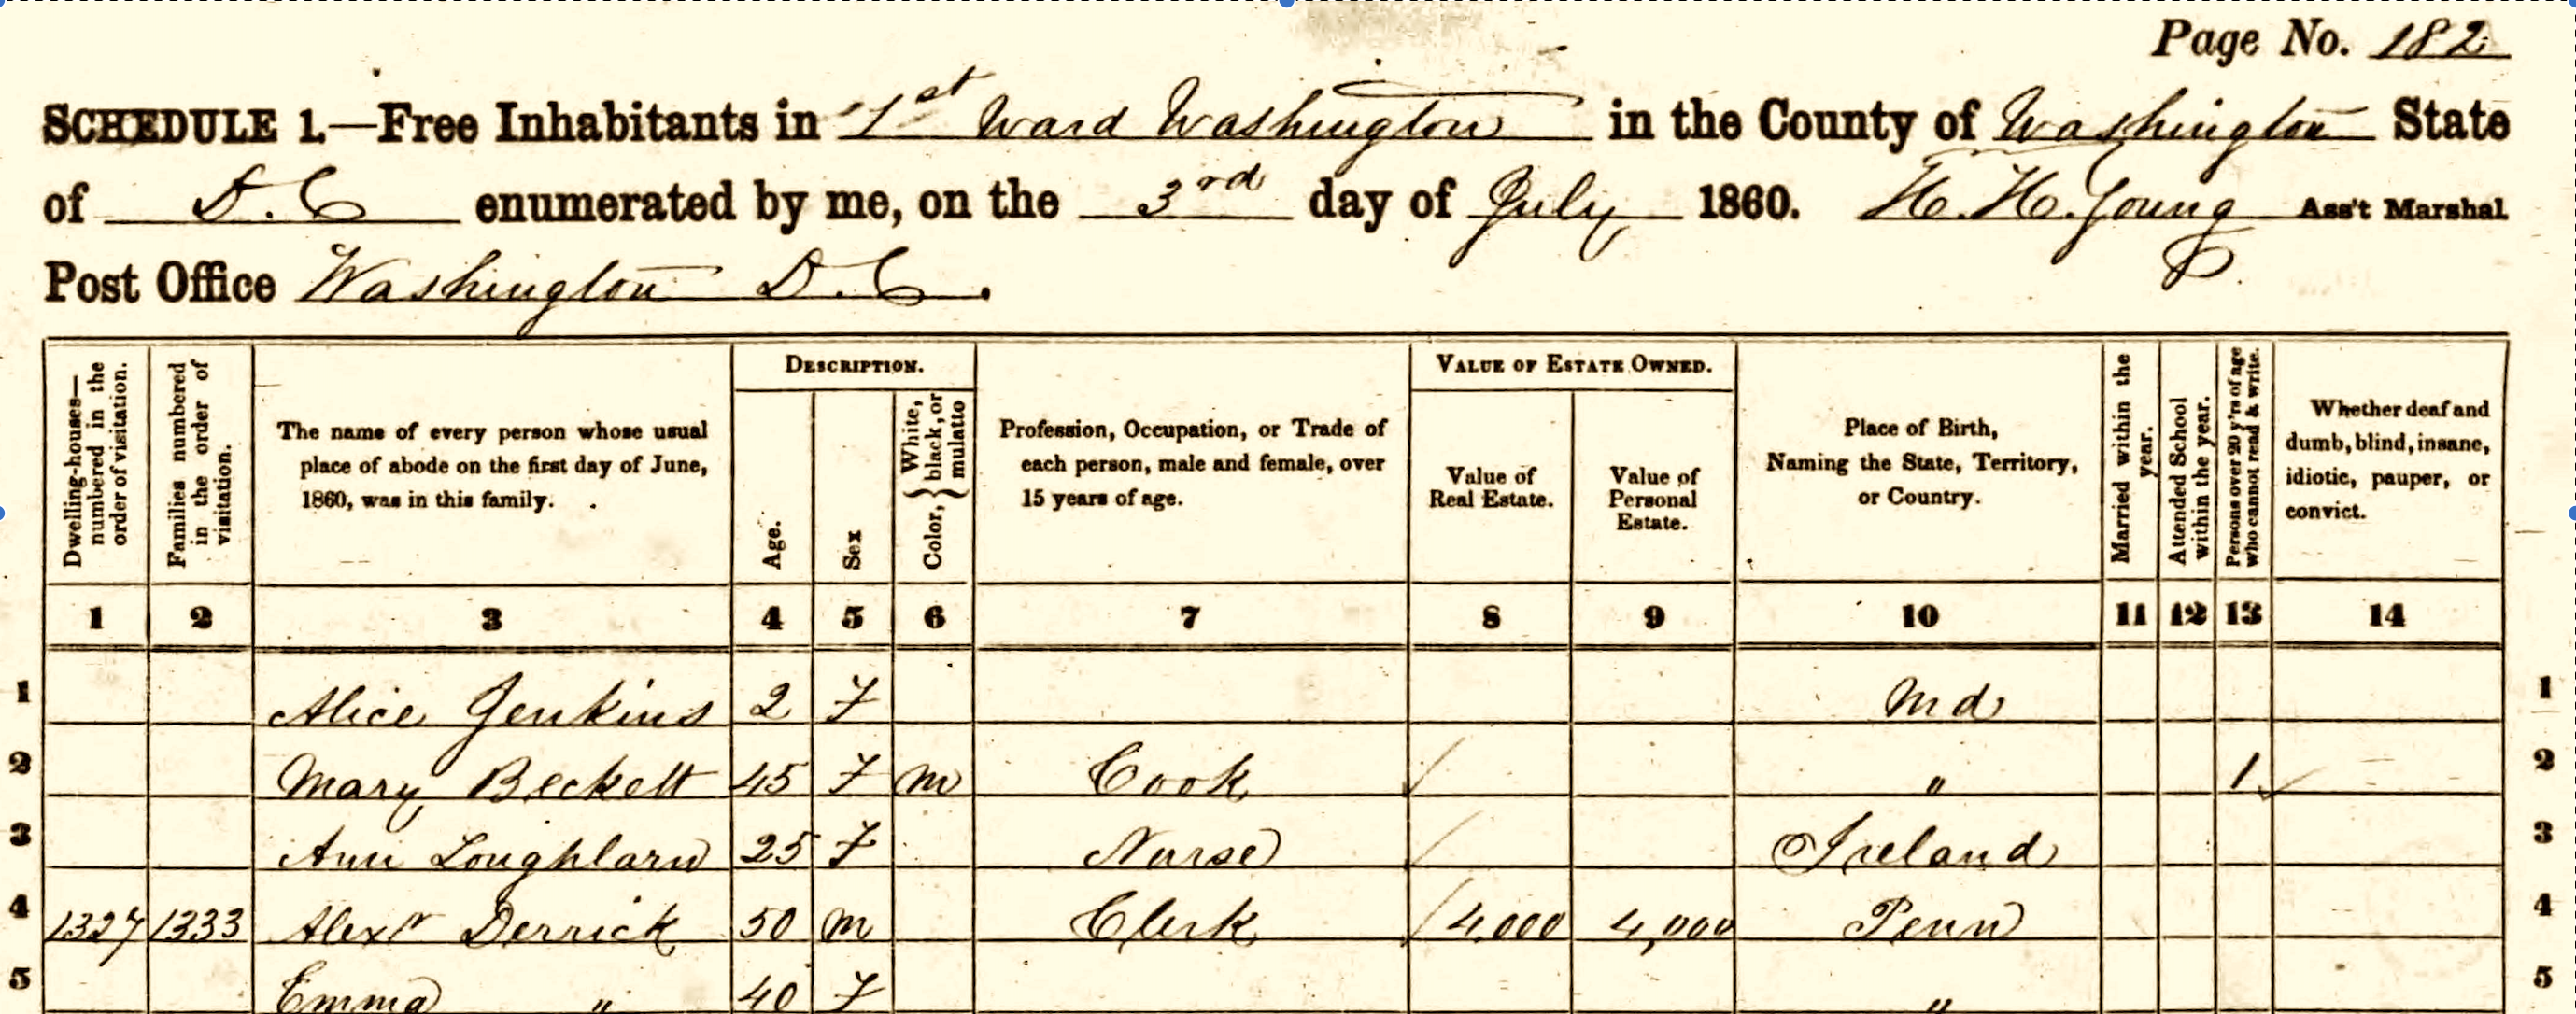 Page No. 182
SCHEDULE 1.—Free Inhabitants in 1st Ward Washington in the County of Washington State
of D. C enumerated by me, on the 3rd day of July 1860. H. H. Young Ass't Marshal
Post Office Washington D. C.
Dwelling-houses—numbered in the order of visitation.
Families numbered in the order of visitation.
The name of every person whose usual
place of abode on the first day of June,
1860, was in this family.
DESCRIPTION.
Age.
Sex
Color, { White, black, or mulatto
Profession, Occupation, or Trade of
each person, male and female, over
15 years of age.
VALUE OF ESTATE OWNED.
Value of
Real Estate.
Value of
Personal
Estate.
Place of Birth,
Naming the State, Territory,
or Country.
Married within the year.
Attended School within the year.
Persons over 20 y'rs of age who cannot read & write.
Whether deaf and
dumb, blind, insane,
idiotic, pauper, or
convict.
1 2 3 4 5 6 7 8 9 10 11 12 13 14
1 Alice Jenkins 2 F Md 1
2 Mary Beckett 45 F M Cook " 1 2
3 Ann Loughlarn 25 F Nurse Ireland 3
4 1327 1333 Alexr Derrick 50 M Clerk 4,000 4,000 Penn 4
5 Emma " 40 F " 5